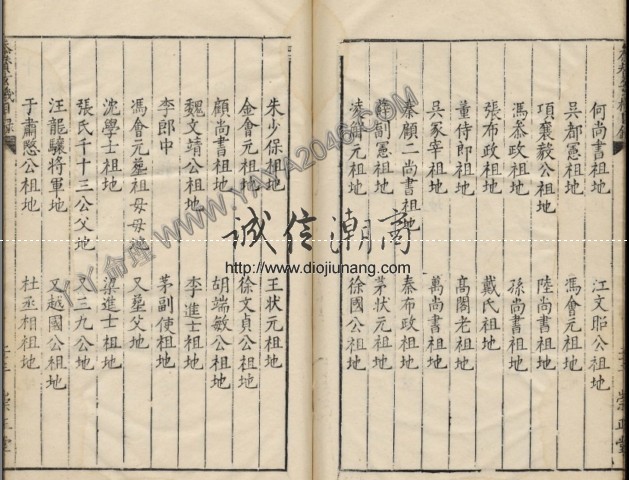 何尚書祖地 江文昭公祖地
吳都憲祖地 馮會元祖地
項襄毅公祖地 陸尚書祖地
馮叅政祖地 孫尚書祖地
張布政祖地 戴氏祖地
董侍郎祖地 高閣老祖地
吳冢宰祖地 萬尚書祖地
秦顧二尚書祖地 秦布政祖地
薛副憲祖地 茅狀元祖地
凌解元祖地 徐國公祖地
崇正堂
朱少保祖地 王狀元祖地
金會元祖地 徐文貞公祖地
顧尚書祖地 胡端敏公祖地
魏文靖公祖地 李進士祖地
李郎中 茅副使祖地
馮會元墓祖母母地 又墓父地
沈學士祖地 梁進士祖地
張氏千十三公父地 又三九公地
汪龍驤將軍地 又越國公祖地
于肅愍公祖地 杜丞相祖地
崇正堂
诚信潮商
http://www.diojiunang.com/
丫丫命理 WWW.YAYA2046.COM